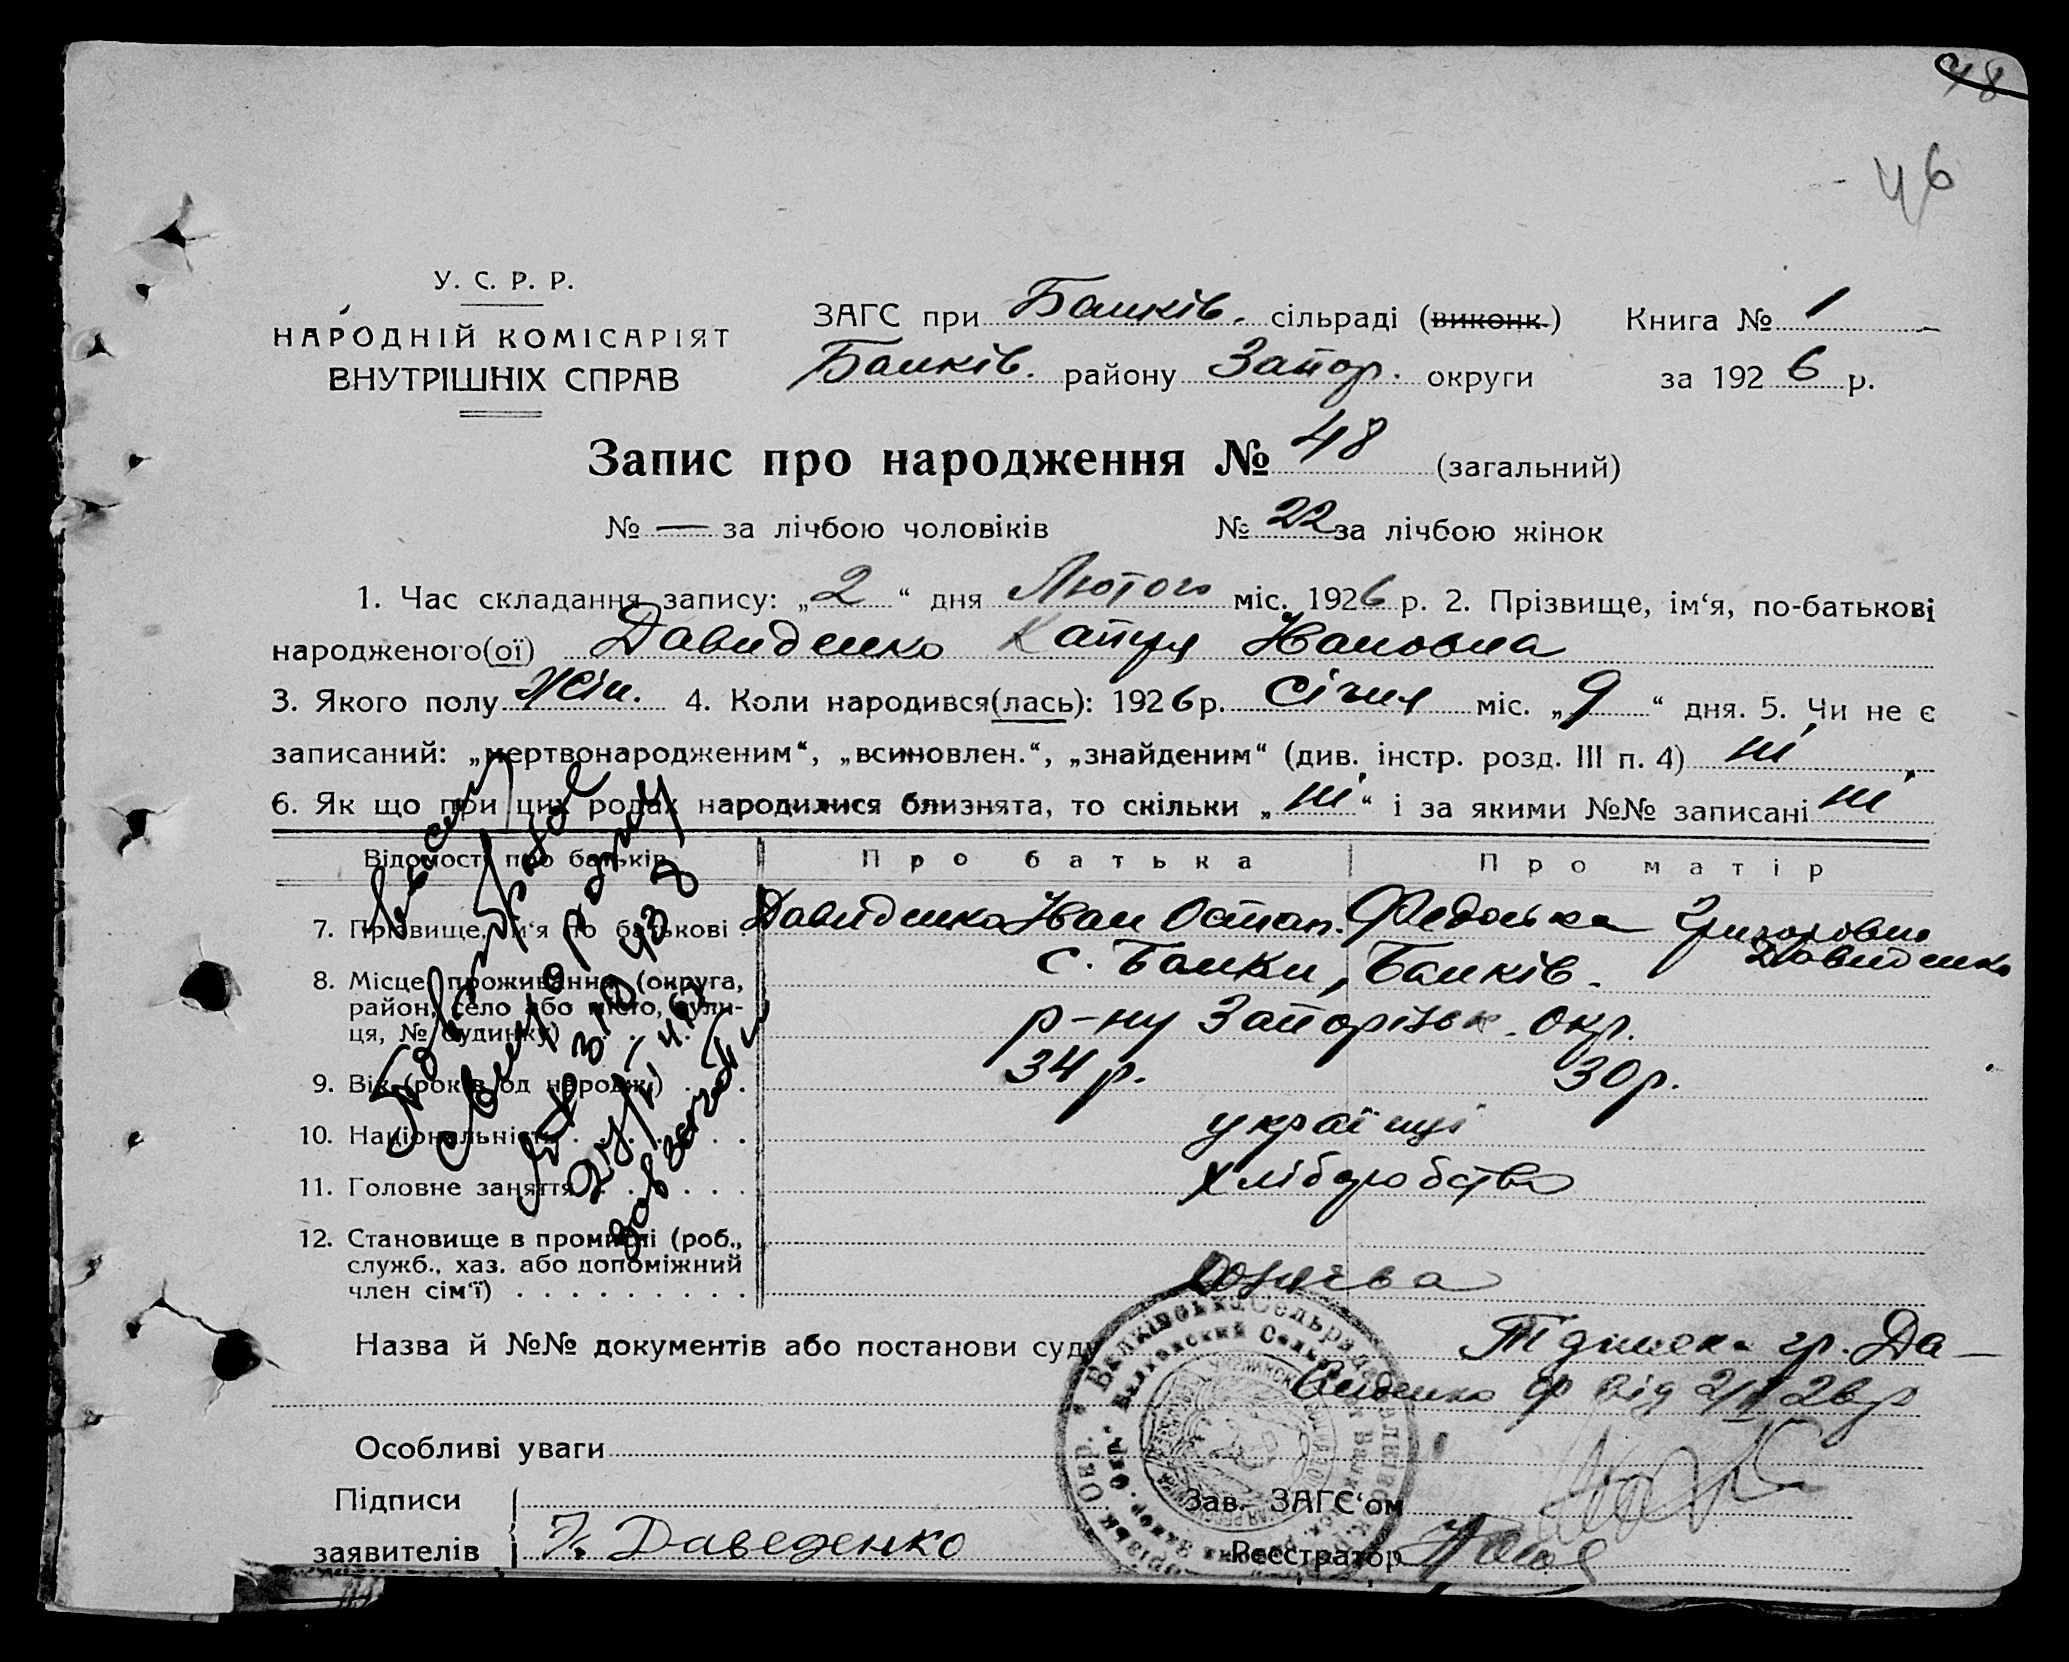 48
46
У. С. Р. Р.
НАРОДНІЙ КОМІСАРІЯТ
ВНУТРІШНІХ СПРАВ
ЗАГС при Балків. сільраді (виконк.) Книга № 1
Балків. району Запор. округи за 1926 р.
Запис про народження № 48 (загальний)
№ — за лічбою чоловіків № 22 за лічбою жінок
1. Час складання запису: „2“ дня Лютого міс. 1926 р. 2. Прізвище, ім‘я, по-батькові
народженого(ої) Давиденко Катря Ивановна
3. Якого полу жін. 4. Коли народився(лась): 1926 р. Січня міс. „9“ дня. 5. Чи не є
записаний: „мертвонародженим“, „всиновлен.“, „знайденим“ (див. інстр. розд. III п. 4) ні
6. Як що при цих родах народилися близнята, то скільки „ні“ і за якими №№ записані ні
Відомості про батьків Про батька Про матір
7. Прізвище, ім‘я по батькові Давиденко Иван Остап. Федоська Григоровна
Давиденко
8. Місце проживання (округа, с. Балки, Балків.
район, село або місто, вули-
ця, № будинку) р-ну Запорізьк. Окр.
9. Вік (років од народж.) 34 р. 30 р.
10. Національність українці
11. Головне заняття хліборобство
12. Становище в промислі (роб.,
служб., хаз. або допоміжний
член сім‘ї) хозяєва
Назва й №№ документів або постанови суду Підписка гр. Да-
виденко від 2/II 26 р
Особливі уваги
Підписи Зав. ЗАГС‘ом
заявителів Даведенко Реєстратор